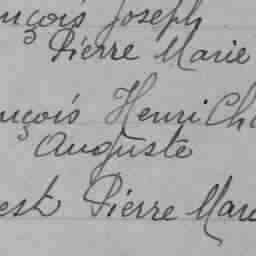 nçois Joseph
Pierre Marie
nçois Henri Cha
Auguste
est Pierre Mar